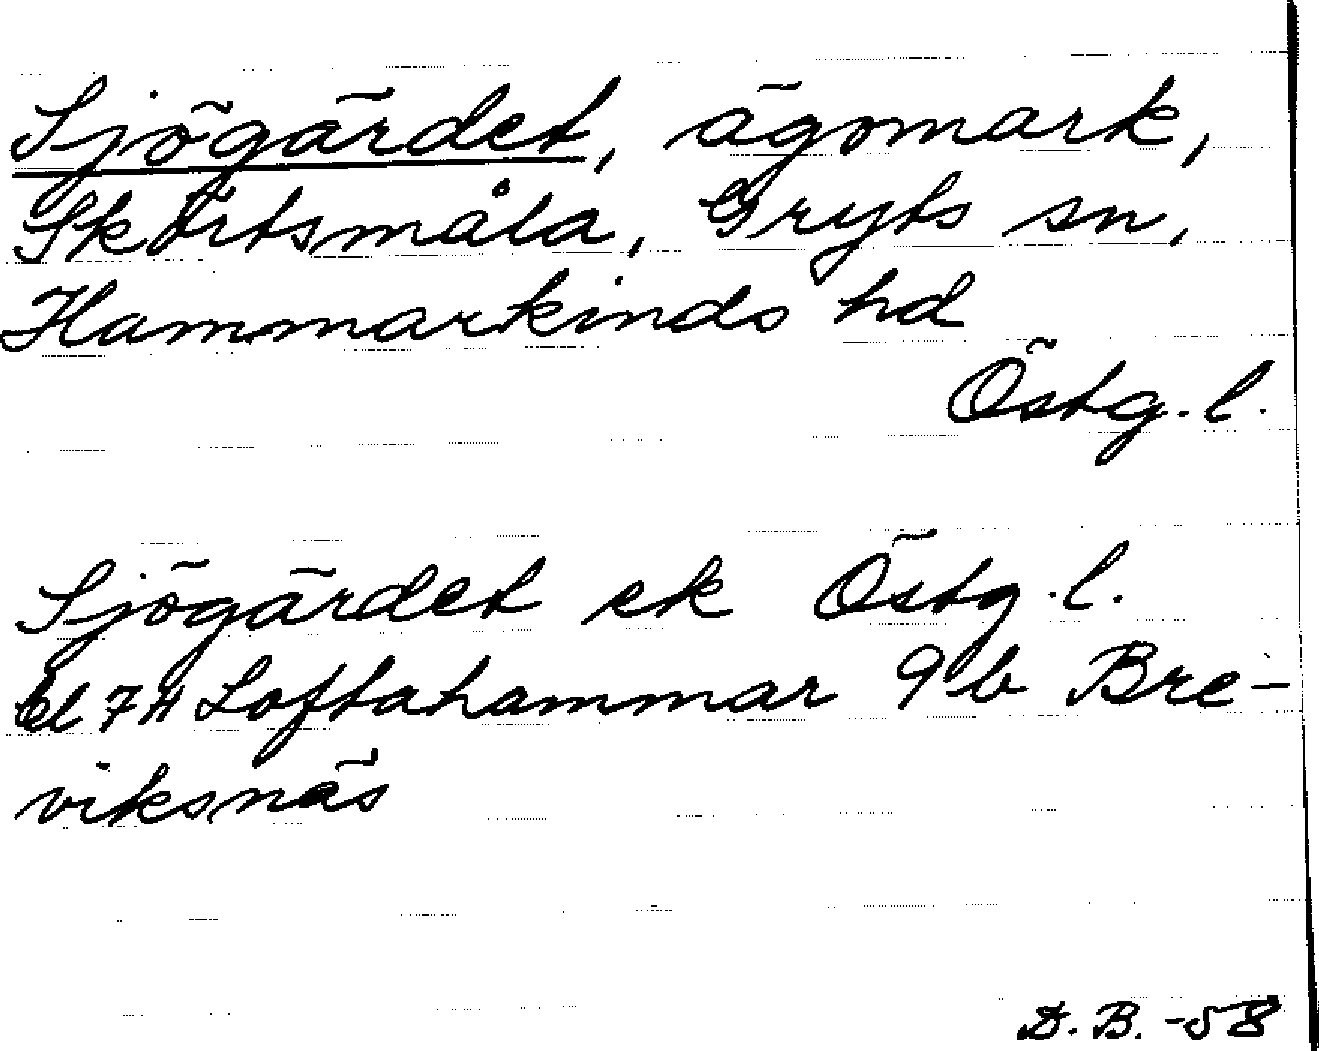 Sjögärdet, ägomark,
Skörtsmåla, Gryts sn,
Hammarkinds hd
Östg. l.
Sjögärdet ek Östg. l.
bl 7H Loftahammar 9b Bre-
viksnäs
D. B. -58